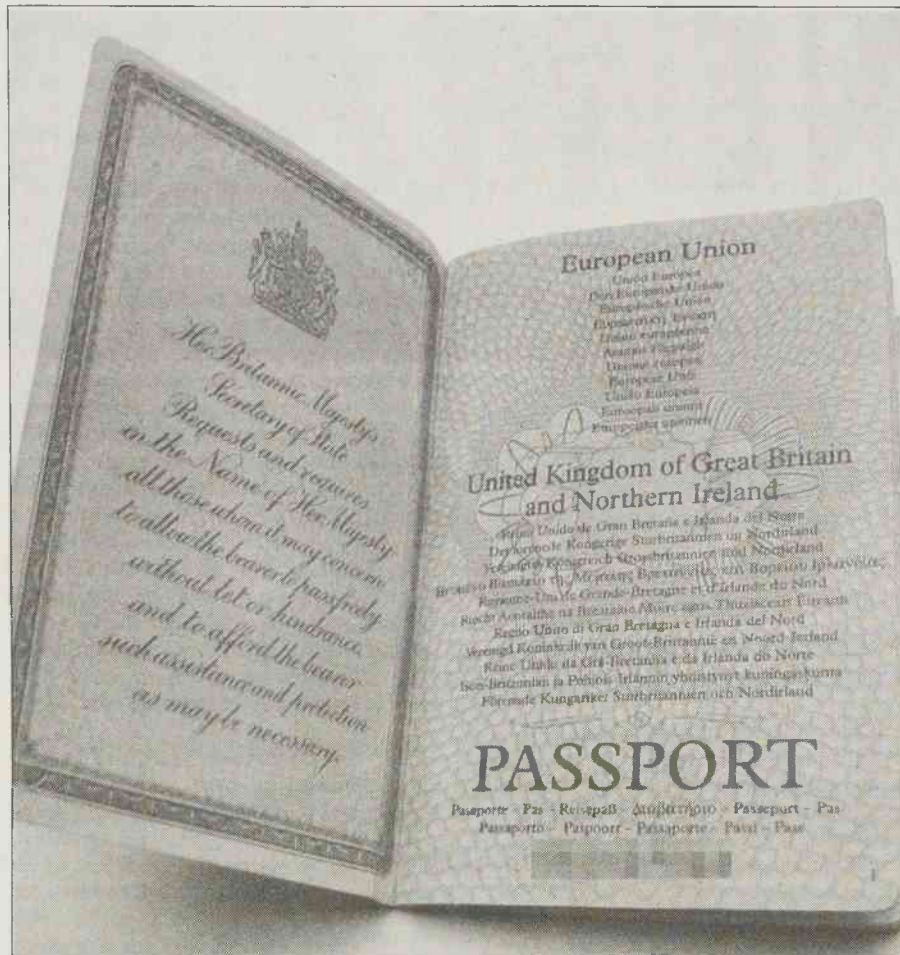 Her Britannic Majesty's
Secretary of State
Requests and requires
in the Name of Her Majesty
all those whom it may concern
to allow the bearer to pass freely
without let or hindrance,
and to afford the bearer
such assistance and protection
as may be necessary.
European Union
Unión Europea
Den Europæiske Union
Europäische Union
Union européenne
Unione europea
Europese Unie
União Europeia
Euroopan unioni
Europeiska unionen
United Kingdom of Great Britain
and Northern Ireland
Reino Unido de Gran Bretaña e Irlanda del Norte
Det forenede Kongerige Storbritannien og Nordirland
Vereinigtes Königreich Großbritannien und Nordirland
Royaume-Uni de Grande-Bretagne et d'Irlande du Nord
Regno Unito di Gran Bretagna e Irlanda del Nord
Verenigd Koninkrijk van Groot-Brittannië en Noord-Ierland
Reino Unido da Grã-Bretanha e da Irlanda do Norte
Ison-Britannian ja Pohjois-Irlannin yhdistynyt kuningaskunta
Förenade Storbritannien och Nordirland
PASSPORT
Pasaporte - Pas - Reisepaß - Διαβατήριο - Passeport - Pas
Passaporto - Paspoort - Passaporte - Passi - Pass
1